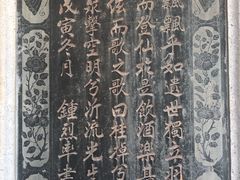 飄飄乎如遺世獨立羽
而登仙於是飲酒樂甚
舷而歌之歌曰桂棹兮
擊空明兮泝流光
戊寅冬月 鍾烈書